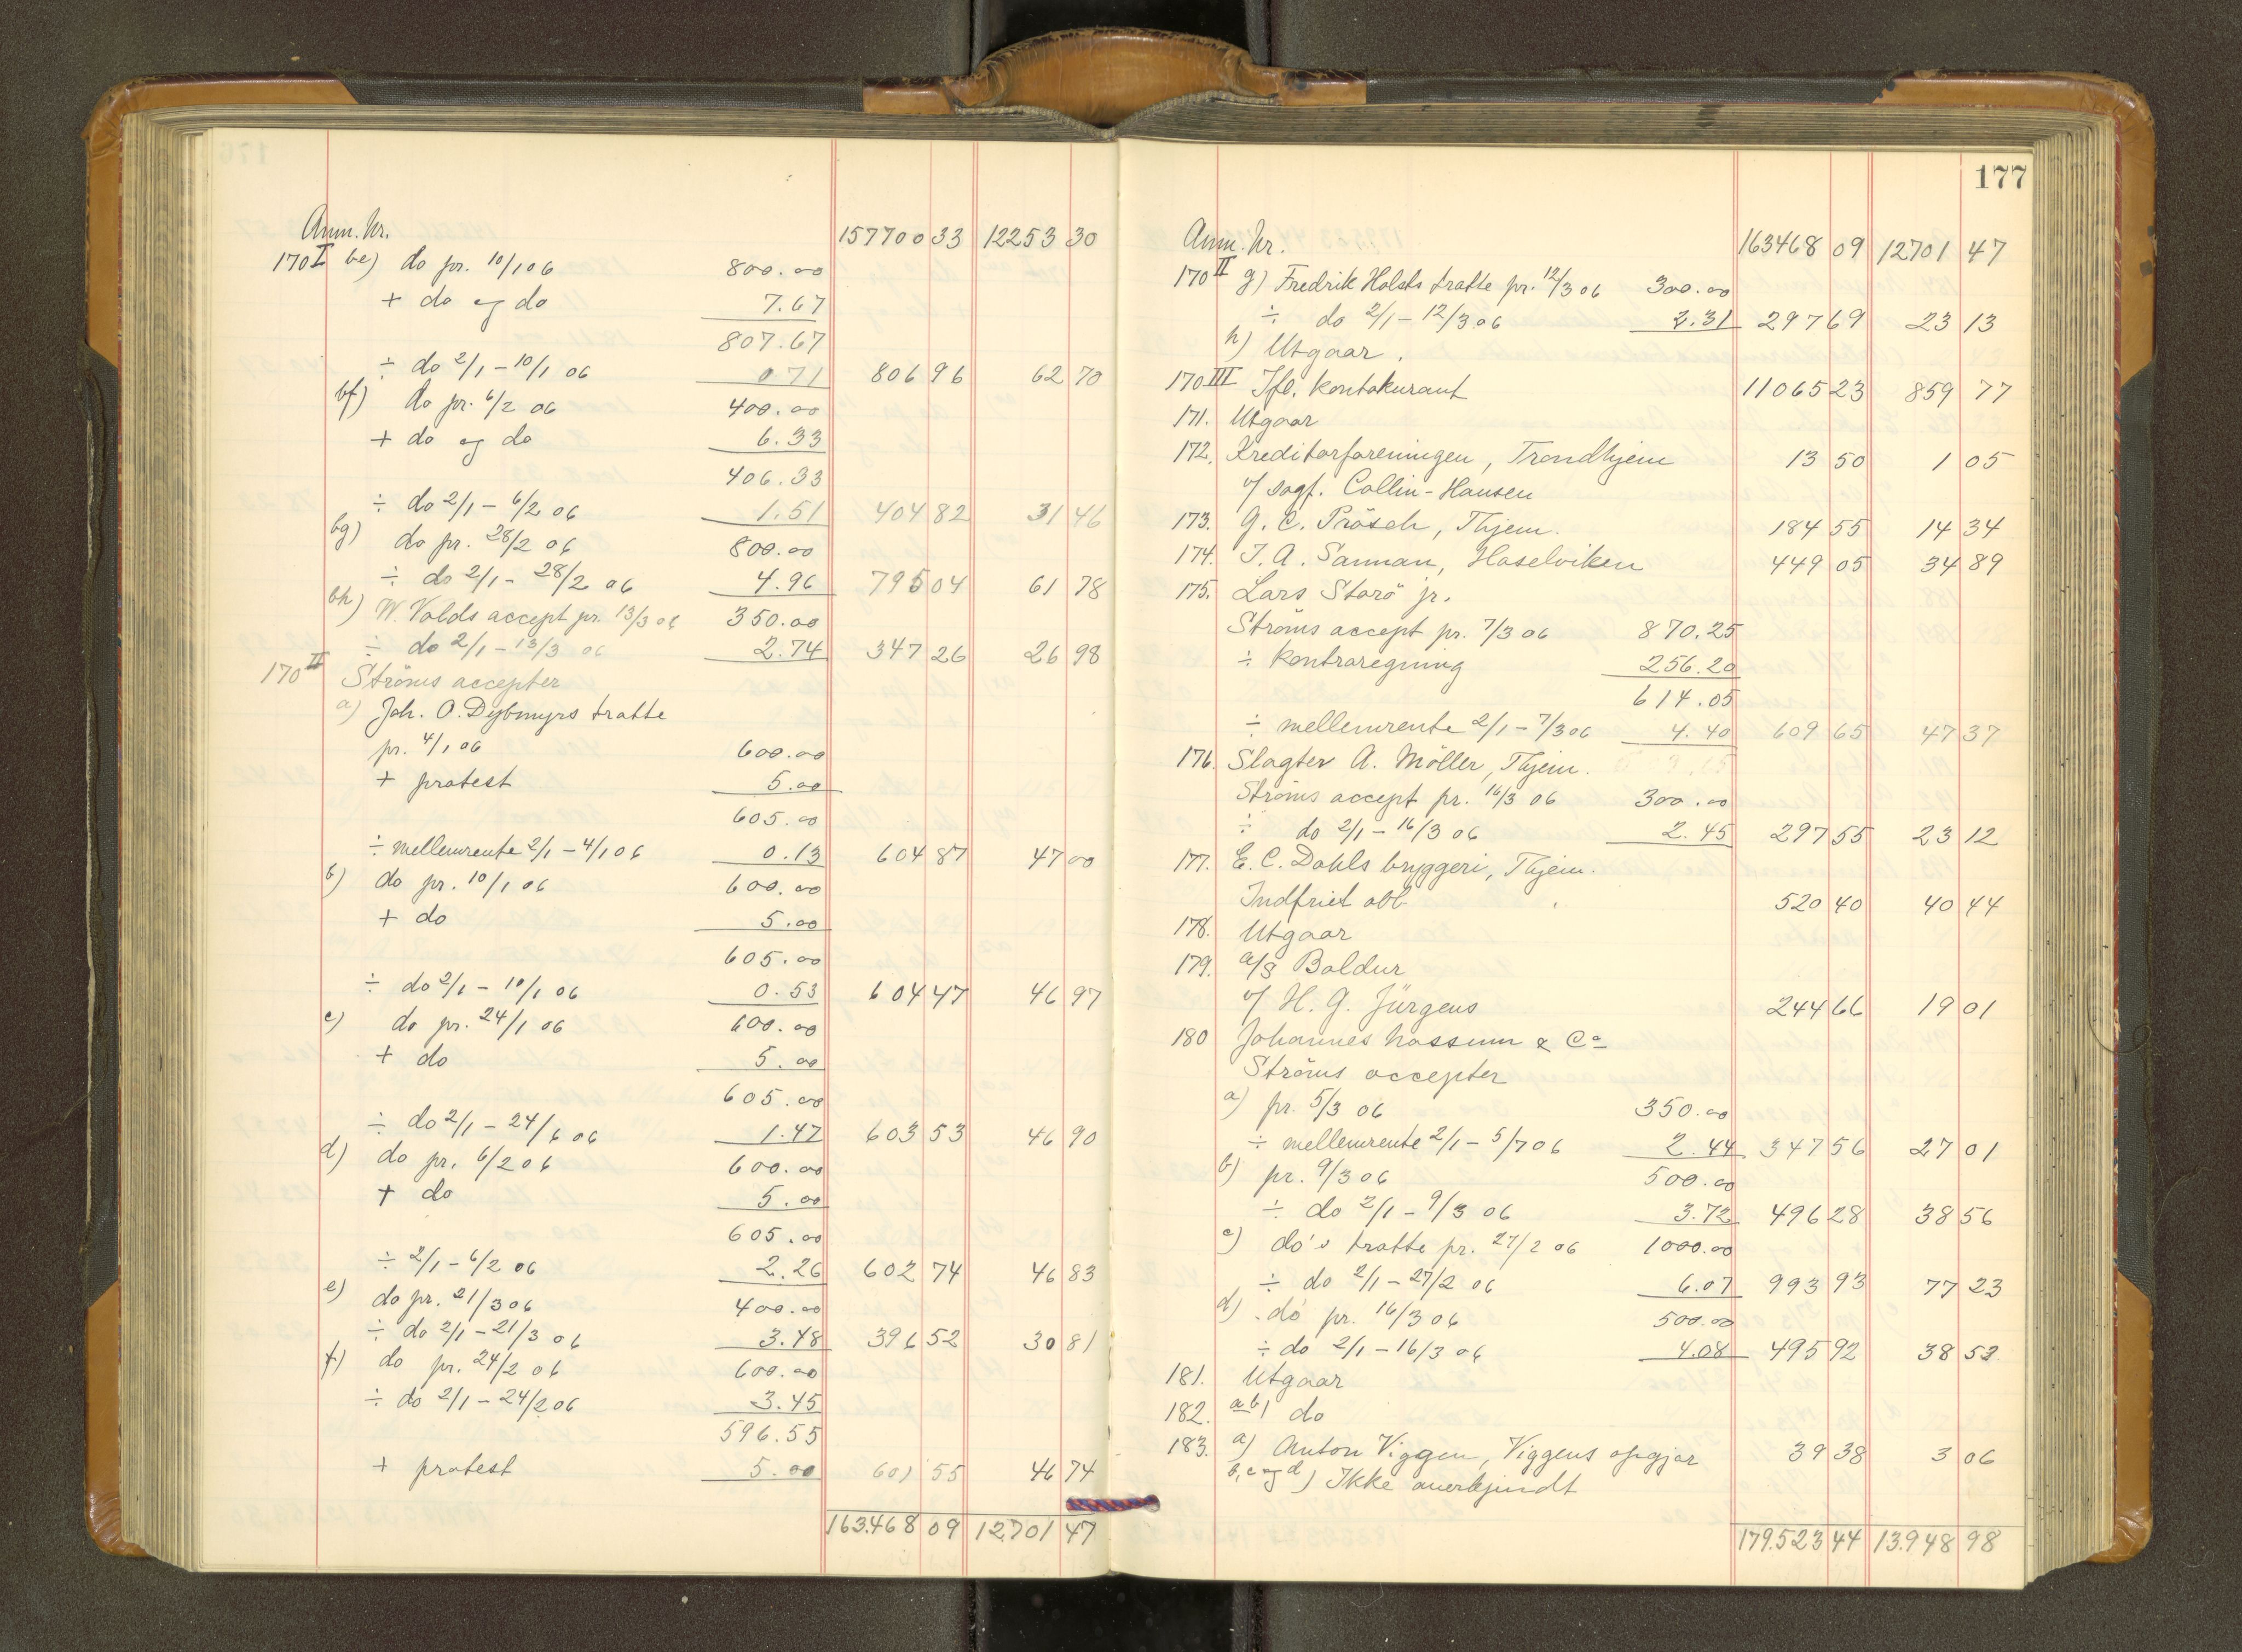 Anm. Nr. 157700 33 12253 30
170 I be) do pr. 10/1 06 800.00
+ do og do 7.67
807.67
÷ do 2/1 – 10/1 06 0 71 806 96 62 70
bf) do pr. 6/2 06 400.00
+ do og do 6.33
406.33
÷ do 2/1 – 6/2 06 1.51 404 82 31 46
bg) do pr. 28/2 06 800.00
÷ do 2/1 - 28/2 06 4.96 795 04 61 78
bh) W. Volds accept pr. 13/3 06 350.00
÷ do 2/1 – 13/3 06 2.74 347 26 26 98
170 II Ströms accepter
a) Joh. O. Dybmyrs tratte
pr. 4/1 06 600.00
+ protest 5.00
605.00
÷ mellemrente 2/1 – 4/1 06 0.13 604 87 47 00
b) do pr. 10/1 06 600.00
+ do 5.00
605.00
÷ do 2/1 – 10/1 06 0.53 604 47 46 97
c) do pr. 24/1 06 600.00
+ do 5.00
605.00
÷ do 2/1 – 24/1 06 1.47 603 53 46 90
d) do pr. 6/2 06 600.00
+ do 5.00
605.00
÷ 2/1 – 6/2 06 2.26 602 74 46 83
e) do pr. 21/3 06 400.00
÷ do 2/1 – 21/3 06 3.48 396 52 30 81
f) do pr. 24/2 06 600.00
÷ do 2/1 – 24/2 06 3.45
596.55
+ protest 5.00 601 55 46 74
163.468 09 12.701 47
177
Anm. Nr. 163468 09 12701 47
170 II g) Fredrik Holsts tratte pr. 12/3 06 300.00
÷ do 2/1 – 12/3 06 2.31 297 69 23 13
h) Utgaar.
170 III Ifl. kontokurant 11065 23 859 77
171. Utgaar
172. Kreditorforeningen, Trondhjem 13 50 1 05
v/ sagf. Collin-Hansen
173. G. C. Prösch, Thjem. 184 55 14 34
174. J. A. Sannan, Haselviken 449 05 34 89
175. Lars Storö jr.
Ströms accept pr. 7/3 06 870.25
÷ kontraregning 256.20
614.05
÷ mellemrente 2/1 – 7/3 06 4.40 609 65 47 37
176. Slagter A. Möller, Thjem.
Ströms accept pr. 16/3 06 300.00
÷ do 2/1 – 16/3 06 2.45 297 55 23 12
177. E. C. Dahls bryggeri, Thjem.
Indfriet obl. 520 40 40 44
178. Utgaar
179. a/s Baldur
v/ H. G. Jürgens 244 66 19 01
180 Johannes Nossum & Co
Ströms accepter
a) pr. 5/3 06 350.00
÷ mellemrente 2/1 – 5/7 06 2.44 347 56 27 01
b) pr. 9/3 06 500.00
÷ do 2/1 – 9/3 06 3.72 496 28 38 56
c) do's tratte pr. 27/2 06 1000.00
÷ do 2/1 – 27/2 06 6.07 993 93 77 23
d) do pr. 16/3 06 500.00
÷ do 2/1 – 16/3 06 4.08 495 92 38 53
181. Utgaar
182. ab) do
183. a) Anton Viggen, Viggens opgjør 39 38 3 06
b, c og d) Ikke anerkjendt
179.523 44 13.948 98